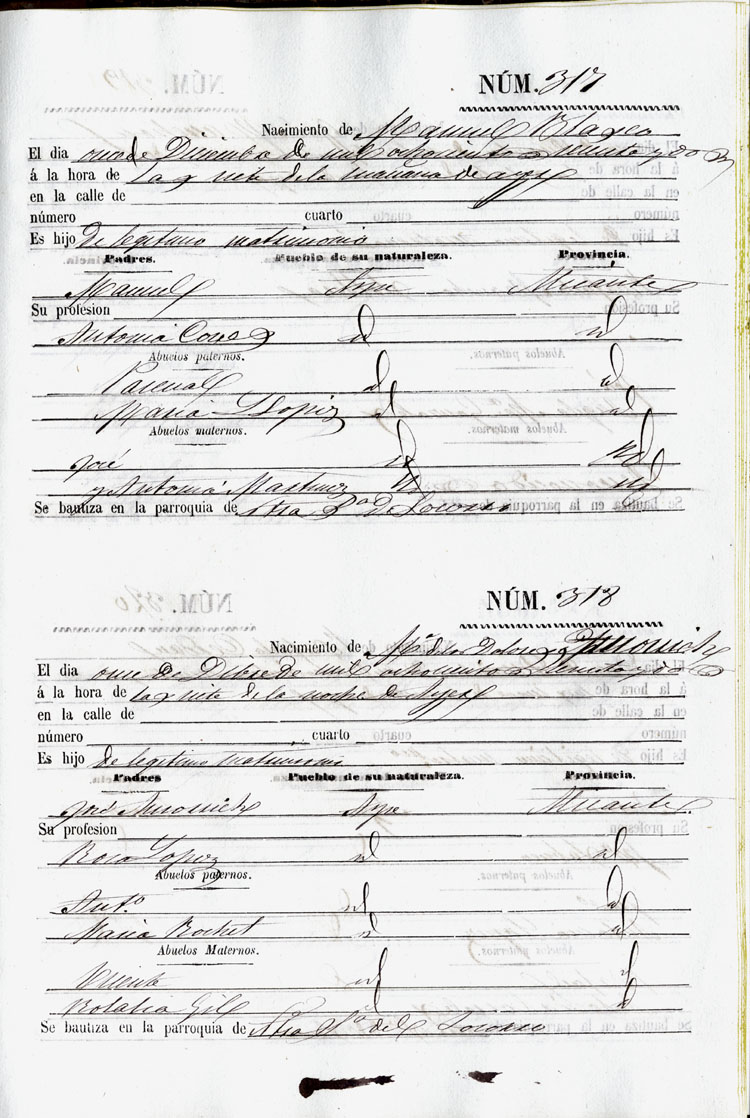 NÚM. 317
Nacimiento de Manuel Blasco
El dia once de Diciembre de mil ochocientos y setenta y dos
á la hora de las siete de la mañana de ayer
en la calle de
número cuarto
Es hijo de legitimo matrimonio
Padres. Pueblo de su naturaleza. Provincia.
Manuel Aspe Alicante
Su profesion
Antonia id id
Abuelos paternos.
Pascual id id
Maria Lopez id id
Abuelos maternos.
José id id
y Antonia Martinez id id
Se bautiza en la parroquia de Ntra Sª del Socorro
NÚM. 318
Nacimiento de Mª de los Dolores
El dia once de Dbre de mil ochocientos y setenta y dos
á la hora de las siete de la noche de Ayer
en la calle de
número cuarto
Es hijo de legitimo matrimonio
Padres Pueblo de su naturaleza. Provincia.
José Aspe Alicante
Su profesion
Rosa Lopez id id
Abuelos paternos.
Antº id id
Maria id id
Abuelos Maternos.
Vicente id id
Rosalia Gil id id
Se bautiza en la parroquia de Ntra Sª del Socorro